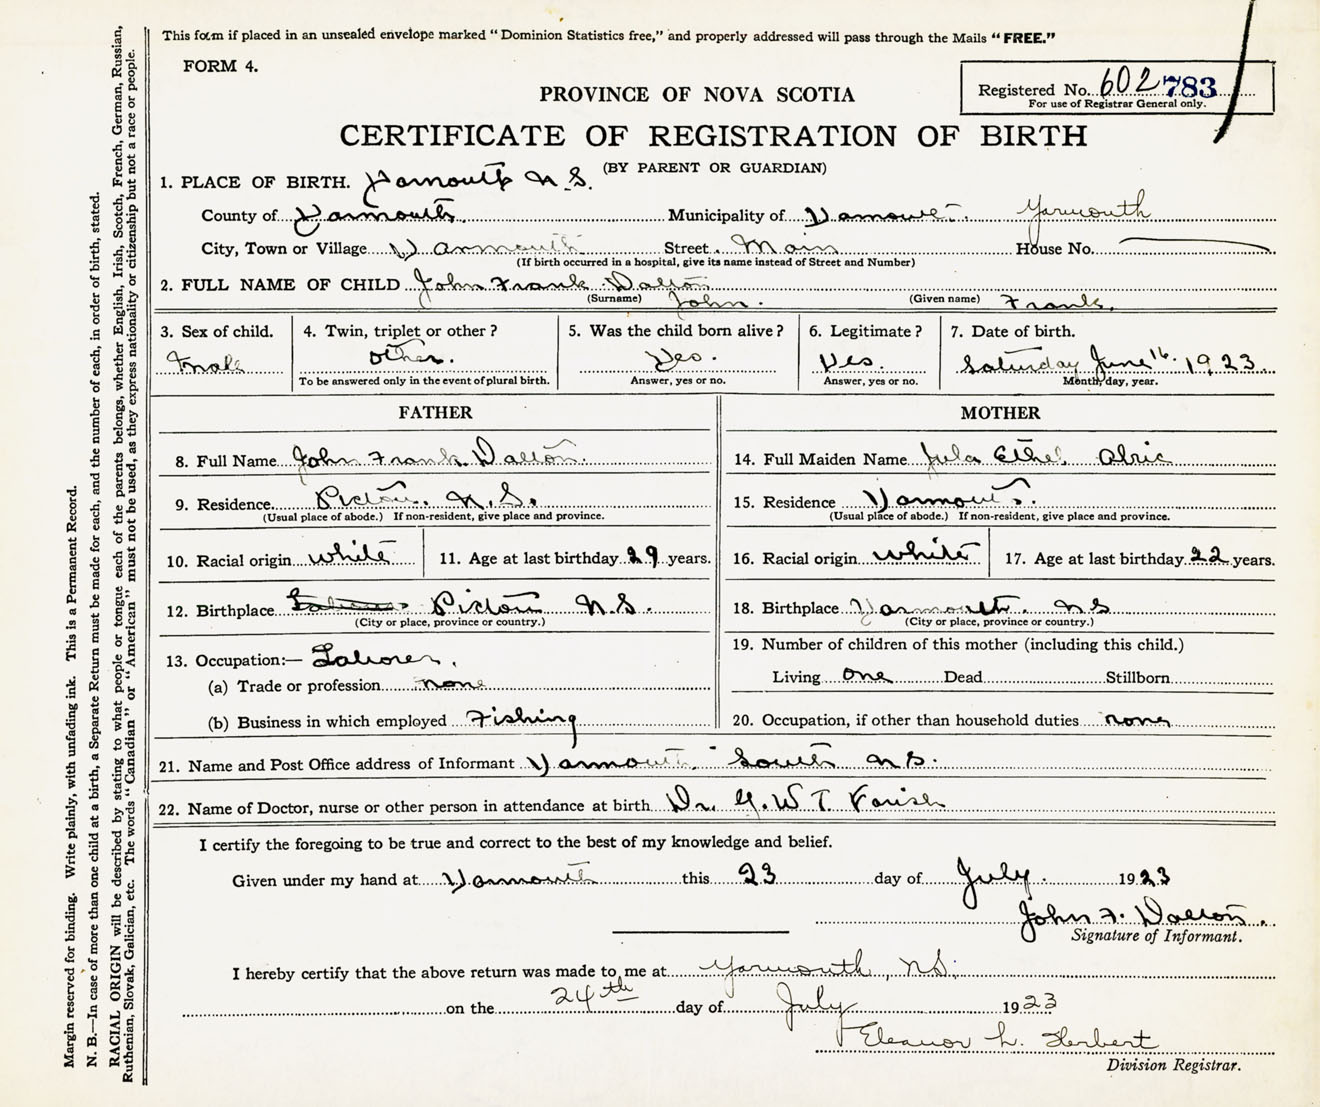 This form if placed in an unsealed envelope marked "Dominion Statistics free," and properly addressed will pass through the Mails "FREE."
FORM 4.
Registered No. 602 783
For use of Registrar General only.
PROVINCE OF NOVA SCOTIA
CERTIFICATE OF REGISTRATION OF BIRTH
(BY PARENT OR GUARDIAN)
1. PLACE OF BIRTH. Yarmouth N.S.
County of Yarmouth Municipality of Yarmouth
City, Town or Village Yarmouth Street Main House No.
(If birth occurred in a hospital, give its name instead of Street and Number)
2. FULL NAME OF CHILD John Frank Dalton
(Surname) John. (Given name) Frank.
3. Sex of child. 4. Twin, triplet or other? 5. Was the child born alive? 6. Legitimate? 7. Date of birth.
male other. Yes. Yes. Saturday June 16. 1923
To be answered only in the event of plural birth. Answer, yes or no. Answer, yes or no. Month, day, year.
FATHER
8. Full Name John Frank Dalton.
9. Residence Pictou. N.S.
(Usual place of abode.) If non-resident, give place and province.
10. Racial origin white 11. Age at last birthday 29 years.
12. Birthplace Pictou N.S.
(City or place, province or country.)
13. Occupation:— Laborer.
(a) Trade or profession none
(b) Business in which employed Fishing
MOTHER
14. Full Maiden Name Ethel
15. Residence Yarmouth.
(Usual place of abode.) If non-resident, give place and province.
16. Racial origin white 17. Age at last birthday 22 years.
18. Birthplace Yarmouth. NS
(City or place, province or country.)
19. Number of children of this mother (including this child.)
Living One Dead Stillborn
20. Occupation, if other than household duties none
21. Name and Post Office address of Informant Yarmouth South NS.
22. Name of Doctor, nurse or other person in attendance at birth Dr. G. W T. Farish
I certify the foregoing to be true and correct to the best of my knowledge and belief.
Given under my hand at Yarmouth this 23 day of July. 1923
John F. Dalton.
Signature of Informant.
I hereby certify that the above return was made to me at Yarmouth, NS.
on the 24th day of July 1923
Eleanor L. Herbert
Division Registrar.
Margin reserved for binding. Write plainly, with unfading ink. This is a Permanent Record.
N. B.—In case of more than one child at a birth, a Separate Return must be made for each, and the number of each, in order of birth, stated.
RACIAL ORIGIN will be described by stating to what people or tongue each of the parents belongs, whether English, Irish, Scotch, French, German, Russian,
Ruthenian, Slovak, Galician, etc. The words "Canadian" or "American" must not be used, as they express nationality or citizenship but not a race or people.